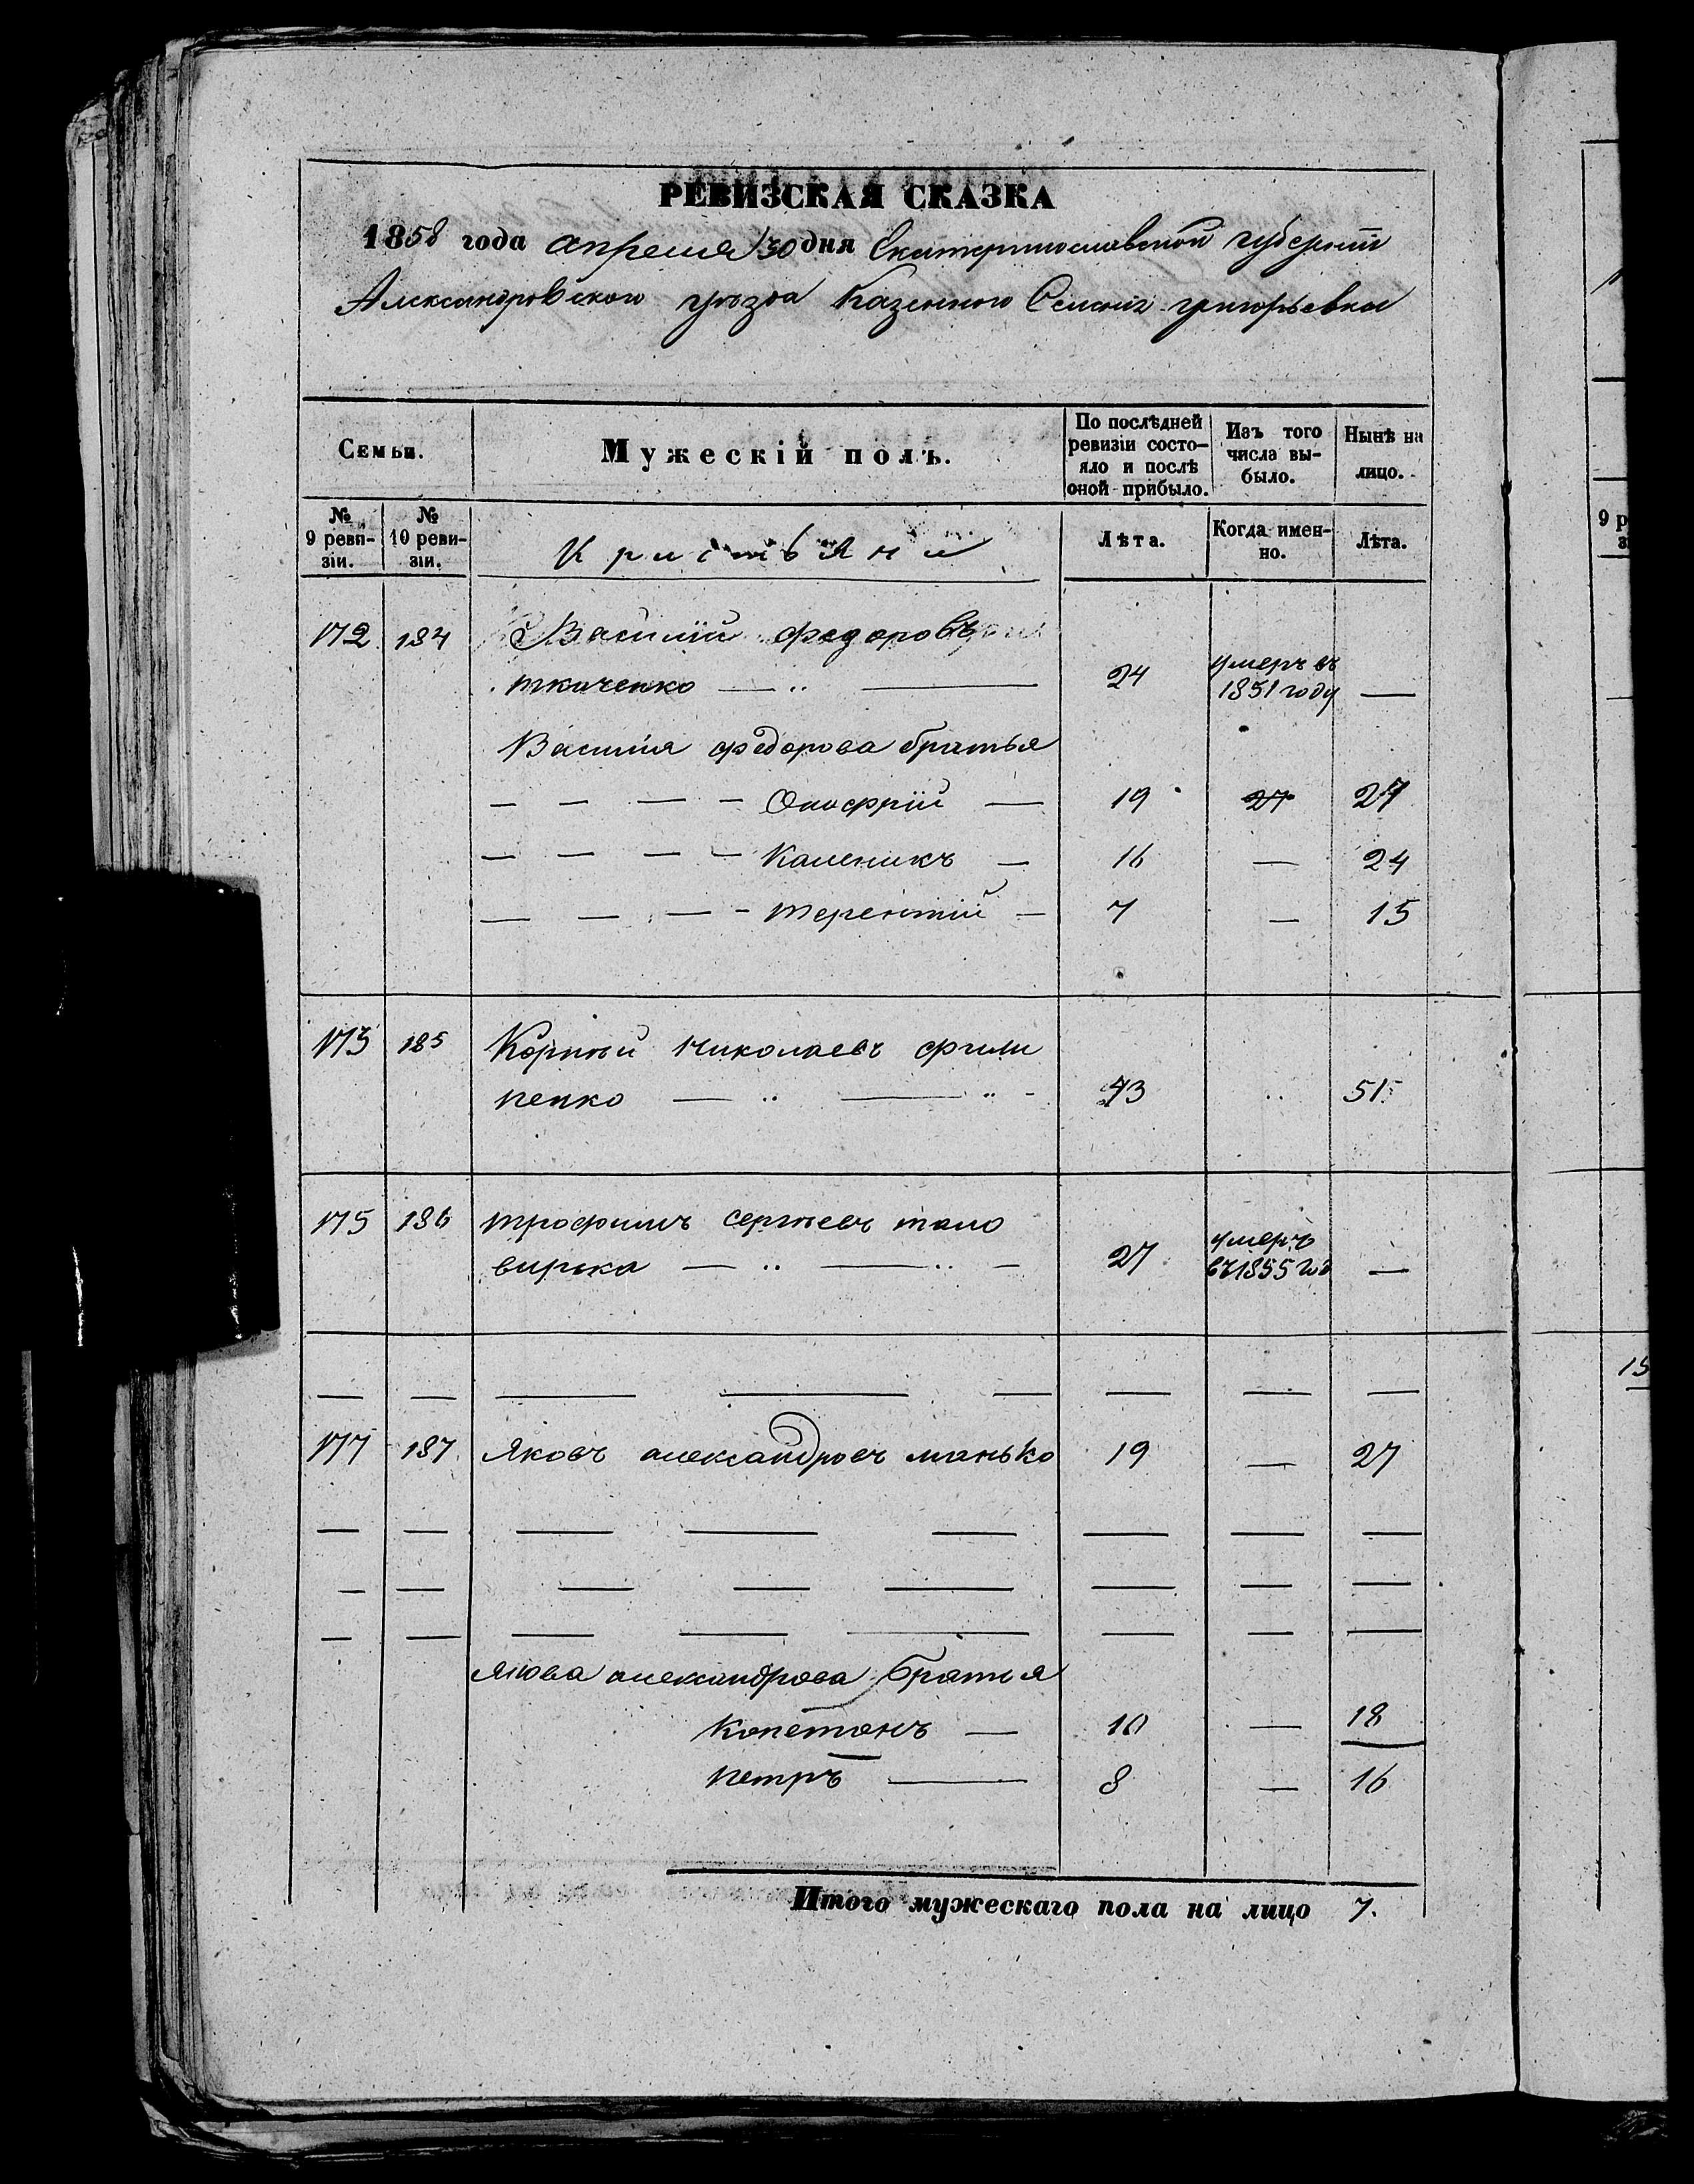 РЕВИЗСКАЯ СКАЗКА
1858 года апреля 30 дня Екатеринославской губернiи
Александровского уѣзда Казенного Селенiя григорьевки
Семьи.
Мужескiй полъ.
По послѣдней ревизiи состо-
яло и послѣ
оной прибыло.
Изъ того
числа вы-
было.
Нынѣ на
лицо.
№
9 реви-
зiи.
№
10 реви-
зiи.
Кристьяни
Лѣта.
Когда имен-
но.
Лѣта.
172 184 Василiй федоровъ
ткаченко — „ — 24 умеръ въ
1851 году —
Василiя федорова братья
— — — — Онофрiй — 19 27 27
— — — — Каленикъ — 16 — 24
— — — — терентiй — 7 — 15
173 185 Корнѣй николаевъ фили
пенко — „ — „ - 43 „ 51
175 186 трофимъ сергѣевъ толо
вирька — „ — „ — 27 умеръ
въ 1855 год —
177 187 Яковъ александровъ манько 19 — 27
Якова александрова братья
Копетонъ — 10 — 18
петръ — 8 — 16
Итого мужескаго пола на лицо 7.
9 р
15